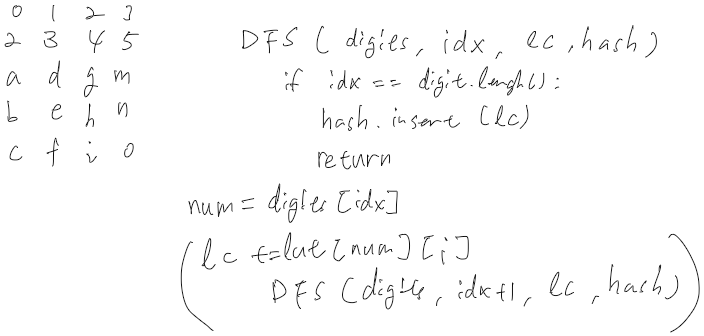 0 1 2 3
2 3 4 5
a d g m
b e h n
c f i o
DFS ( digits, idx, lc, hash )
if idx == digit.lenght() :
hash. insert (lc)
return
num = digits [idx]
lc += lut [num] [i]
DFS (digits, idx+1, lc, hash)